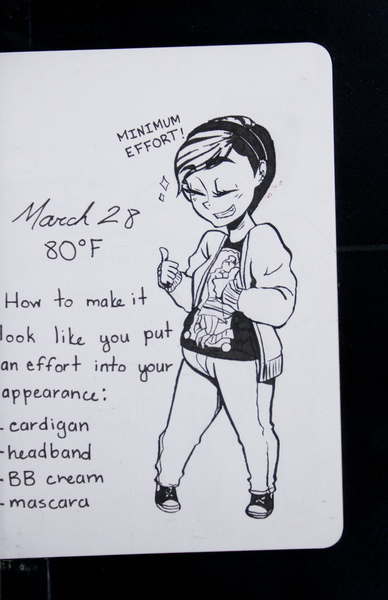 MINIMUM
EFFORT!
March 28
80°F
How to make it
look like you put
an effort into your
appearance:
- cardigan
- headband
- BB cream
- mascara